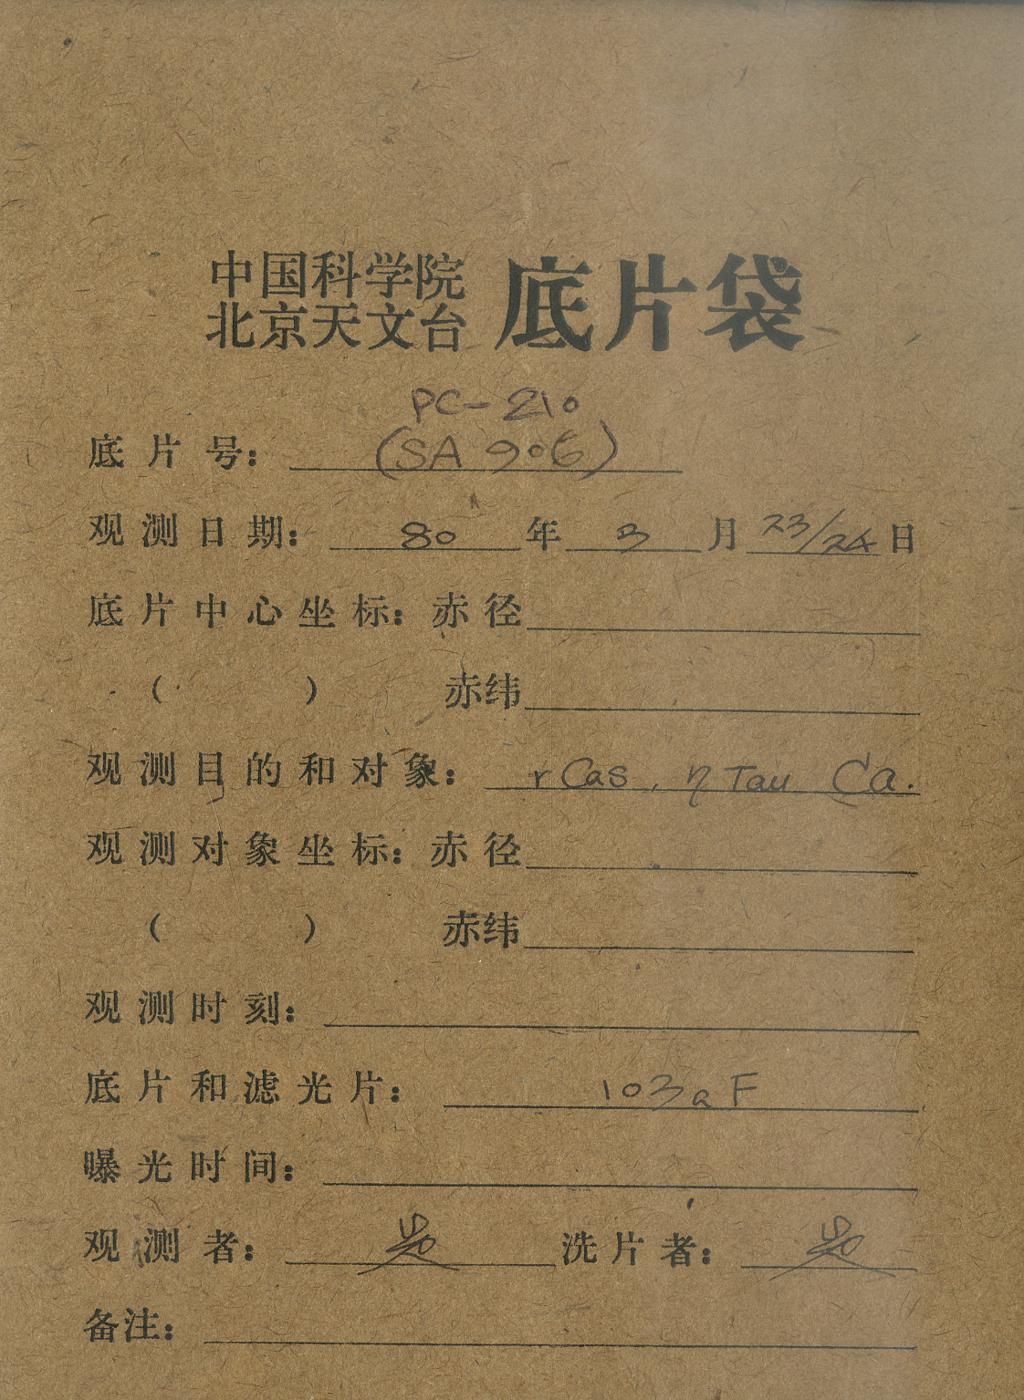 中国科学院
北京天文台 底片袋
PC-210
底片号： (SA 906)
观测日期： 80 年 3 月 23/24 日
底片中心坐标：赤径
（ ） 赤纬
观测目的和对象： r Cas, η Tau Ca.
观测对象坐标：赤径
（ ） 赤纬
观测时刻：
底片和滤光片： 103aF
曝光时间：
观测者： 洗片者：
备注：